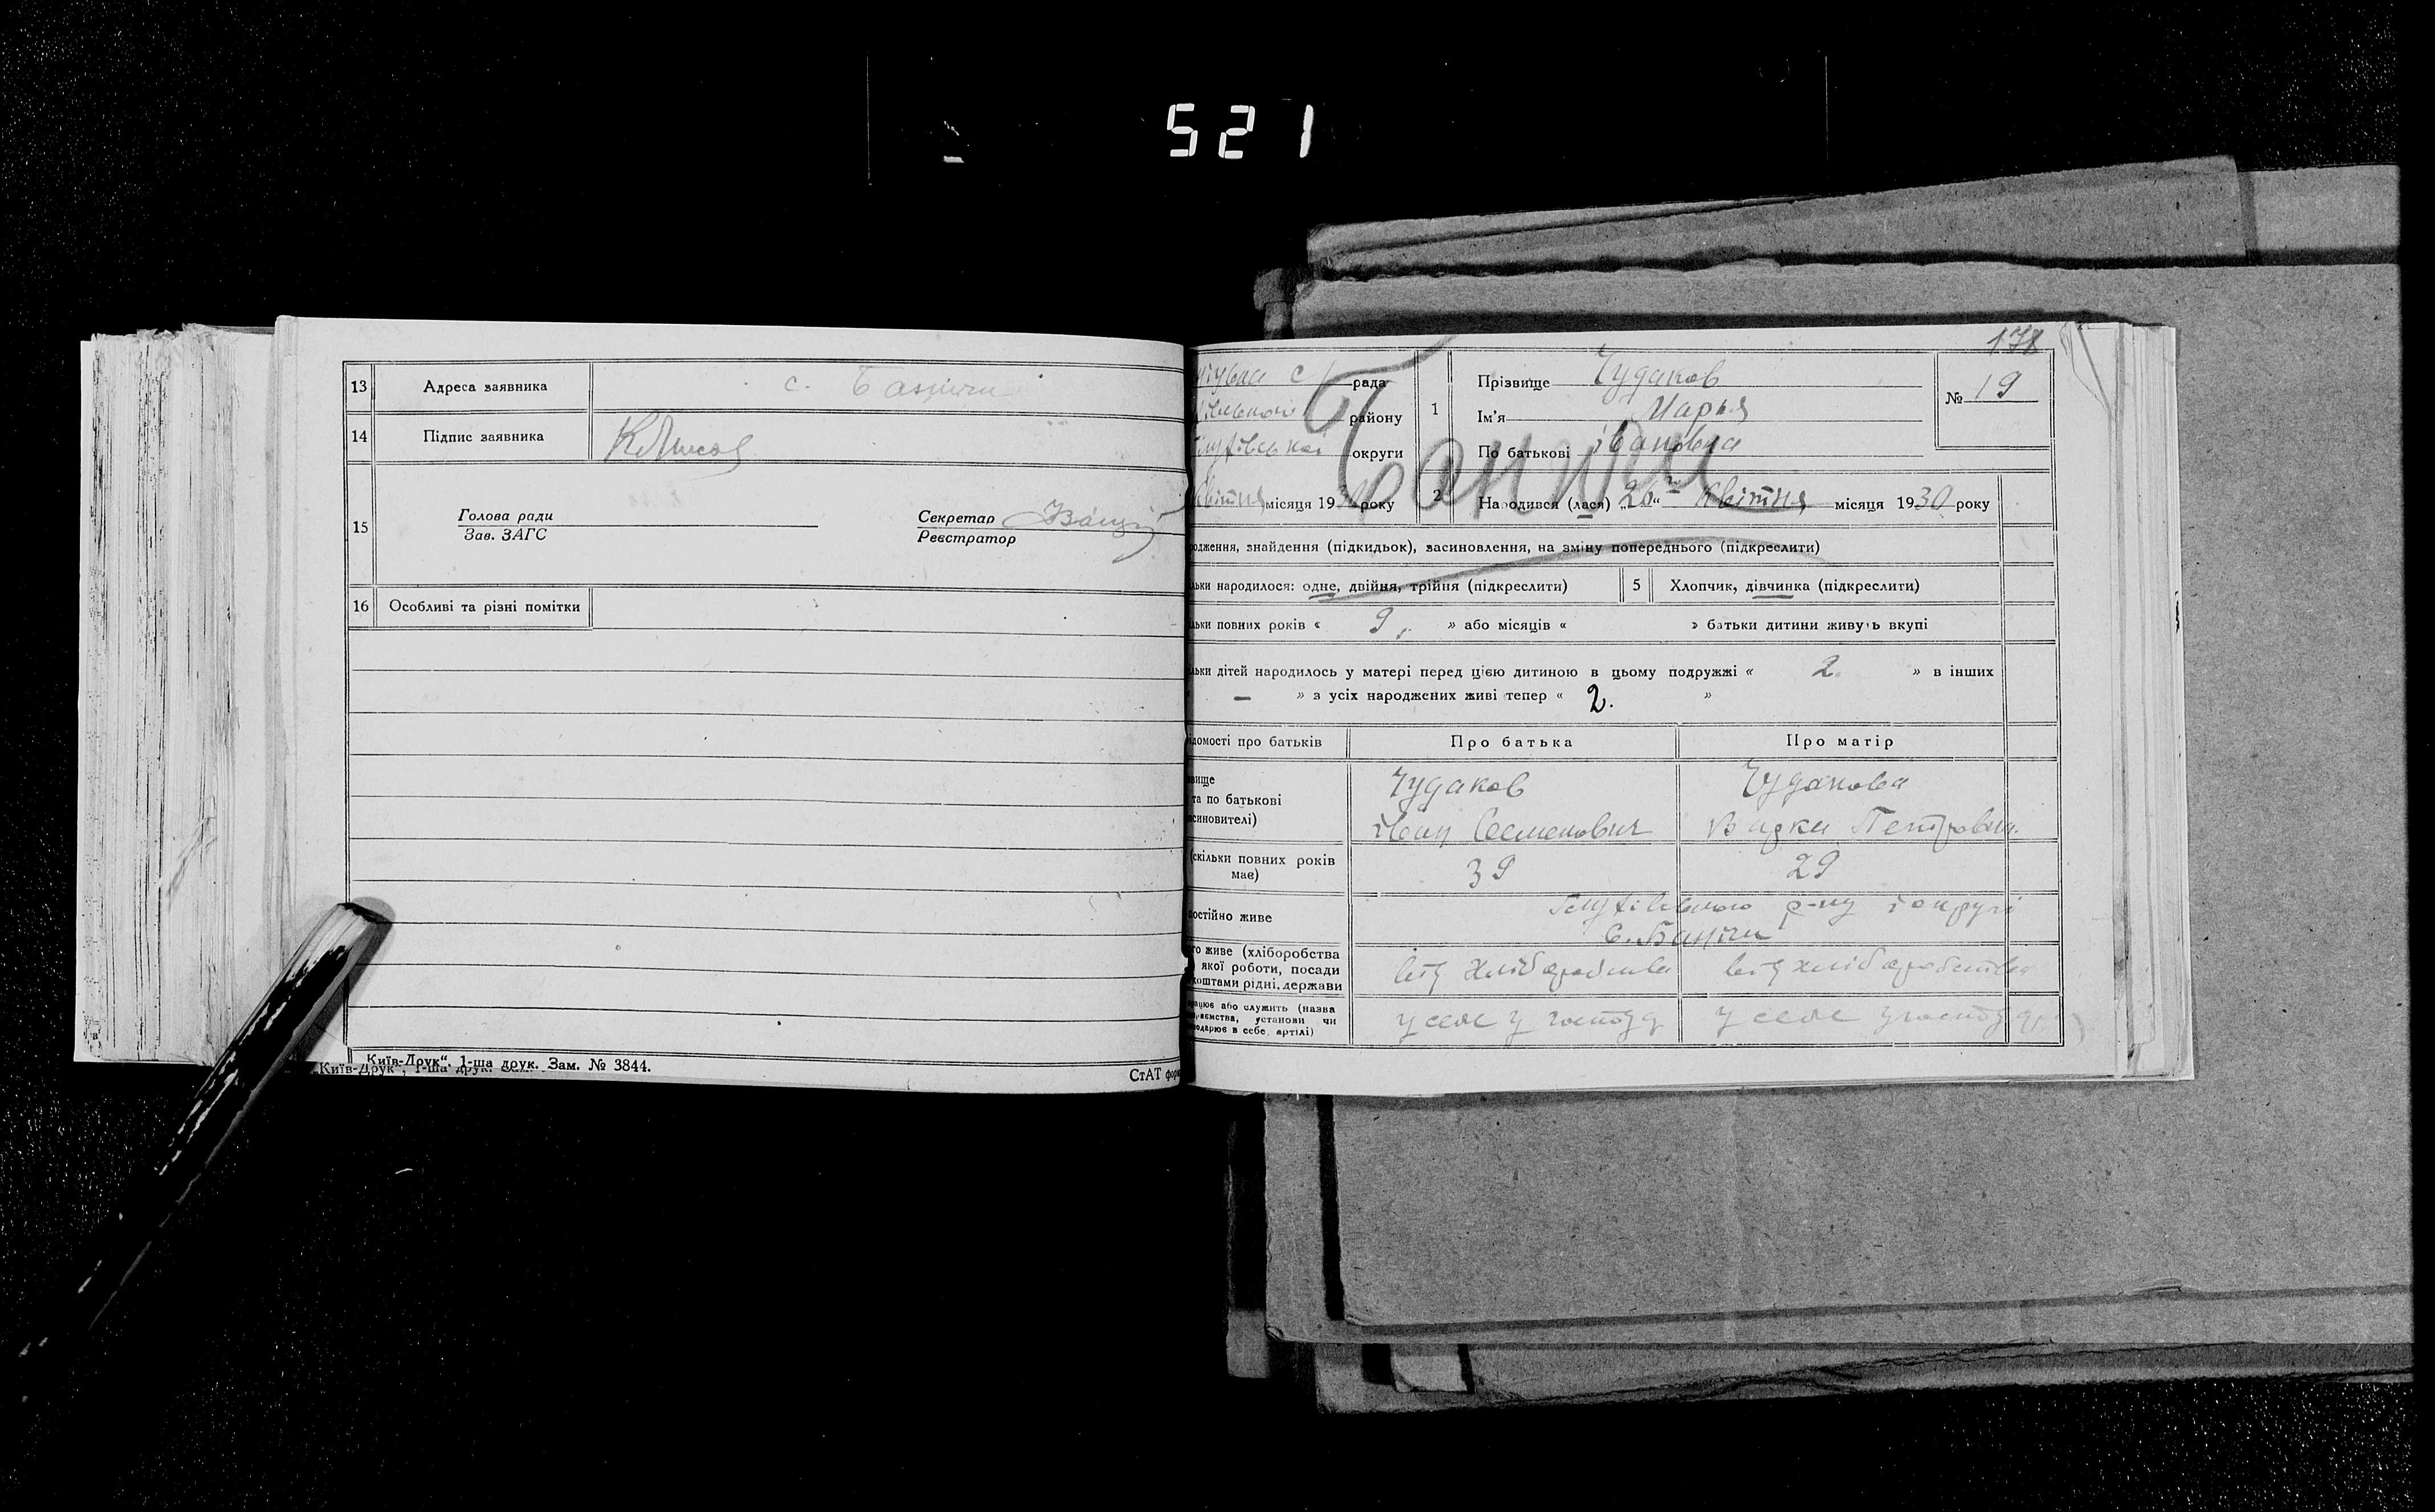 521
13 Адреса заявника с. Баничи
14 Підпис заявника
15 Голова ради
Зав. ЗАГС
Секретар
Реєстратор
16 Особливі та різні помітки
„Київ-Друк“. 1-ша друк. Зам. № 3844.
СтАТ
178
рада
району
округи
Квітня місяця 1930 року
Баничи
1 Прізвище Чудаков
Ім'я Марья
По батькові івановна
№ 19
2 Народився (лася) „20“ Квітня місяця 1930 року
знайдення (підкидьок), засиновлення, на зміну попереднього (підкреслити)
народилося: одне, двійня, трійня (підкреслити)
5 Хлопчик, дівчинка (підкреслити)
повних років « 9 » або місяців « » батьки дитини живуть вкупі
дітей народилось у матері перед цією дитиною в цьому подружжі « 2. » в інших
— » з усіх народжених живі тепер « 2. »
про батьків Про батька Про матір
Чудаков Чудакова
та по батькові
іван Семенович Варка Петровна
(скільки повних років
має) 39 29
живе Глухівського р-ну і округи
с. Баничи
живе (хліборобства
якої роботи, посади
коштами рідні, держави
від хліборобства від хліборобства
або служить (назва
установи чи
в себе, артілі)
у селе у господ у селе у господ